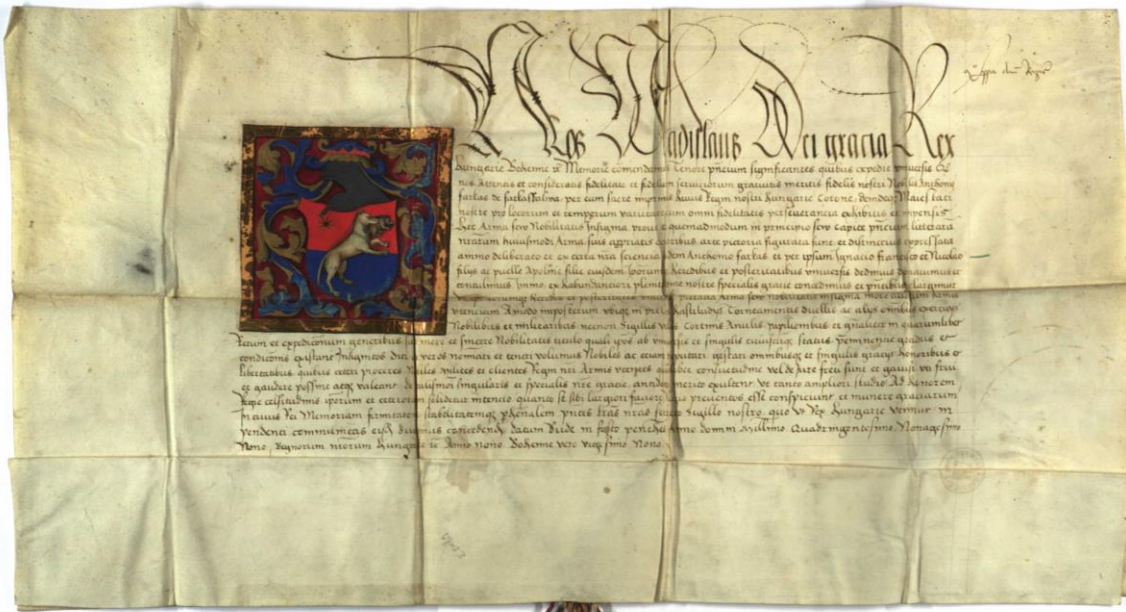 Nos Wladislaus Dei gracia Rex
Hungarie Bohemie Memorie comendamus Tenore pñcium significantes quibus expedit vniuersis
fidelitate et fidelium seruiciorum gratuitis meritis fidelis nostri Nobilis Anthonij
farkas de farkasfalwa per eum sacre inprimis huius Regni nostri Hungarie Corone deindeq Maiestati
nostre pro locorum et temporum varietate cum omni fidelitatis perseuerancia exhibitis et impensis
Hec Arma sew Nobilitatis Insignia prout et quemadmodum in principio sew capite pñcium litterarum
nrarum huiusmodi Arma suis appropriatis coloribus arte pictoria figurata sunt et distinctius expressata
animo deliberato et ex certa nra sciencia eidem Anthonio farkas et per ipsum Ignacio francisco et Nicolao
filijs ac puelle Apolonie filie eiusdem ipsorumq heredibus et posteritatibus vniuersis dedimus donauimus et
contulimus Immo ex habundanciori plenitudine nostre specialis gracie concedimus et pñtibus largimur
Vt ipsi eorumq heredes et posteritates vniuerse prefata Arma sew nobilitatis insignia more aliorum Armis
vtencium Amodo imposterum vbiq in prelijs hastiludijs Torneamentis duellis ac alijs omnibus exercicijs
Nobilibus et militaribus necnon Sigillis velis Cortinis Anulis papilionibus et generaliter in quarumlibet
Rerum et expedicionum generibus sub mere et sincere Nobilitatis titulo quo ipsos ab vniuersis et singulis cuiuscunq status preeminencie gradus et
condicionis existant Insignitos dici et veros nominari et teneri volumus Nobiles ac eciam gestari omnibusq et singulis gracijs honoribus et
libertatibus quibus ceteri proceres Nobiles milites et clientes Regni nri Armis vtentes qualitercunq consuetudine vel de Jure freti sunt et gauisi vti frui
et gaudere possint atq valeant singularis et specialis nre gracie antidota merito exultent Vt tanto ampliori studio Ad honorem
Regie celsitudinis ipsorum et ceterorum solidetur intencio quanto se sibi largiori fauore preuentos esse conspiciunt et munere graciarum
In cuius Rei Memoriam firmitatemq perhennalem pñtes lras nras secreto Sigillo nostro quo vt Rex Hungarie vtimur in
pendenti communitas eisdem duximus concedendas datum Bude in festo penthecostes Anno domini Millesimo Quadringentesimo Nonagesimo
Nono Regnorum nrorum Hungarie Anno nono Bohemie vero vigesimo Nono